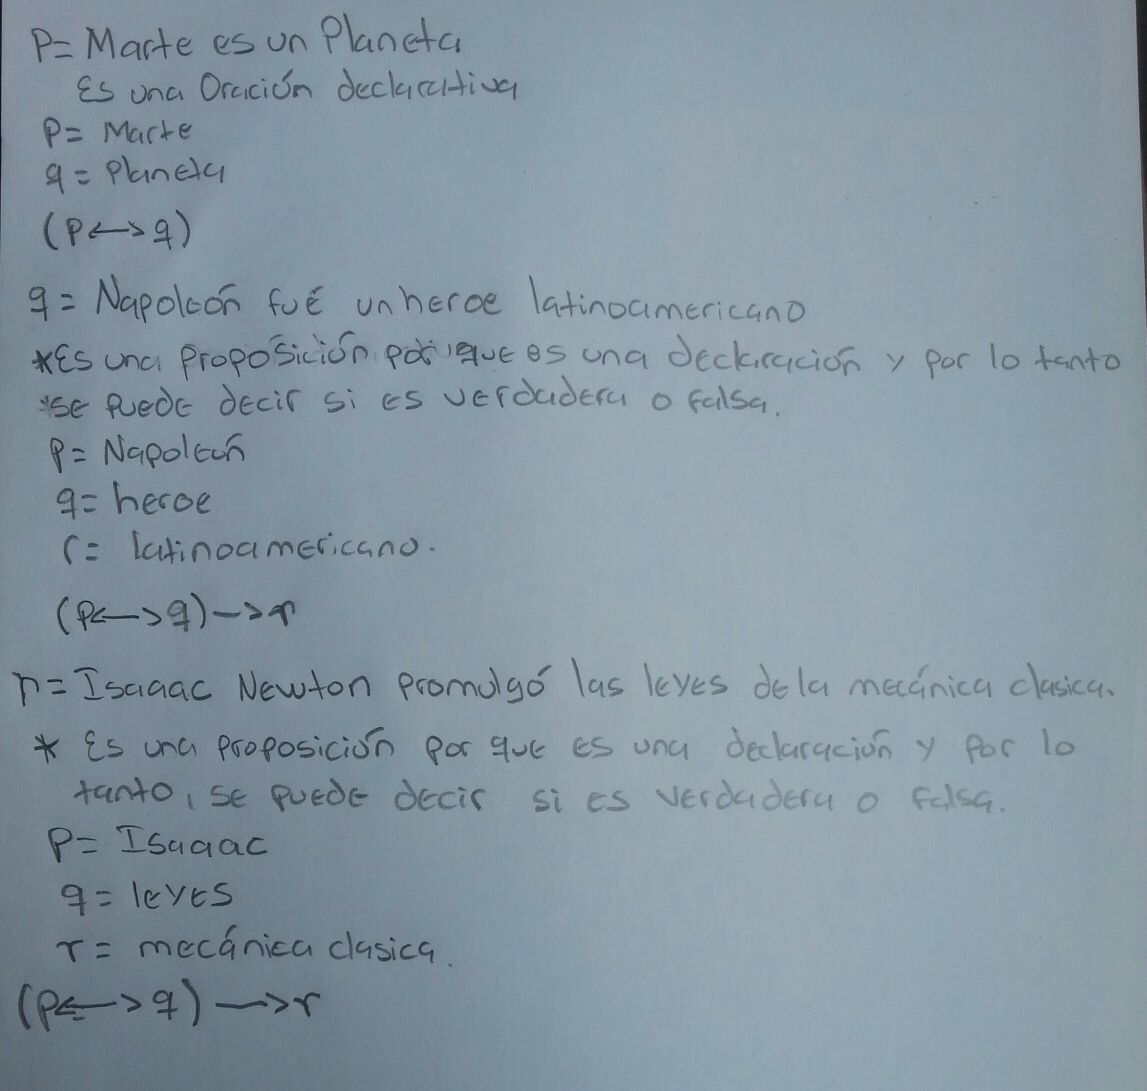 P= Marte es un Planeta
Es una Oración declarativa
P= Marte
q= Planeta
(P<—>q)
q= Napoleón fué un heroe latinoamericano
*Es una proposición por que es una declaración y por lo tanto
se puede decir si es verdadera o falsa.
P= Napoleón
q= heroe
r= latinoamericano.
(P<—>q)—>r
r= Isaaac Newton promulgó las leyes de la mecánica clasica.
* Es una proposición por que es una declaración y por lo
tanto, se puede decir si es verdadera o falsa.
P= Isaaac
q= leyes
r= mecánica clasica.
(P<—>q)—>r